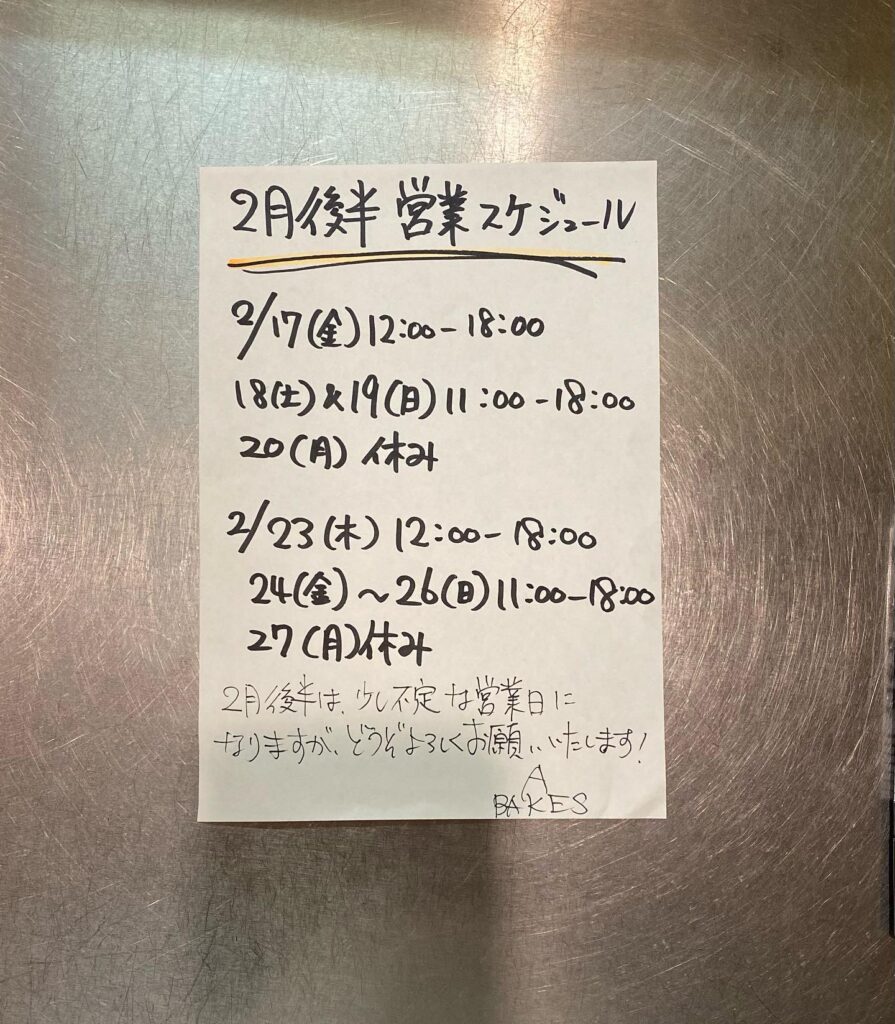 2月後半 営業スケジュール
2/17(金)12:00-18:00
18(土)&19(日)11:00-18:00
20(月) 休み
2/23(木) 12:00-18:00
24(金)～26(日)11:00-18:00
27(月)休み
2月後半は、少し不定な営業日に
なりますが、どうぞよろしくお願いいたします!
A
BAKES